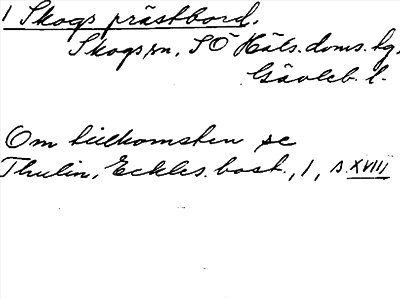 1 Skogs prästbord.
Skogs sn. SÖ Häls. doms. hg,
Gävleb. l.
Om tillkomsten se
Thulin, Eckles. bost., 1, s. XVIII